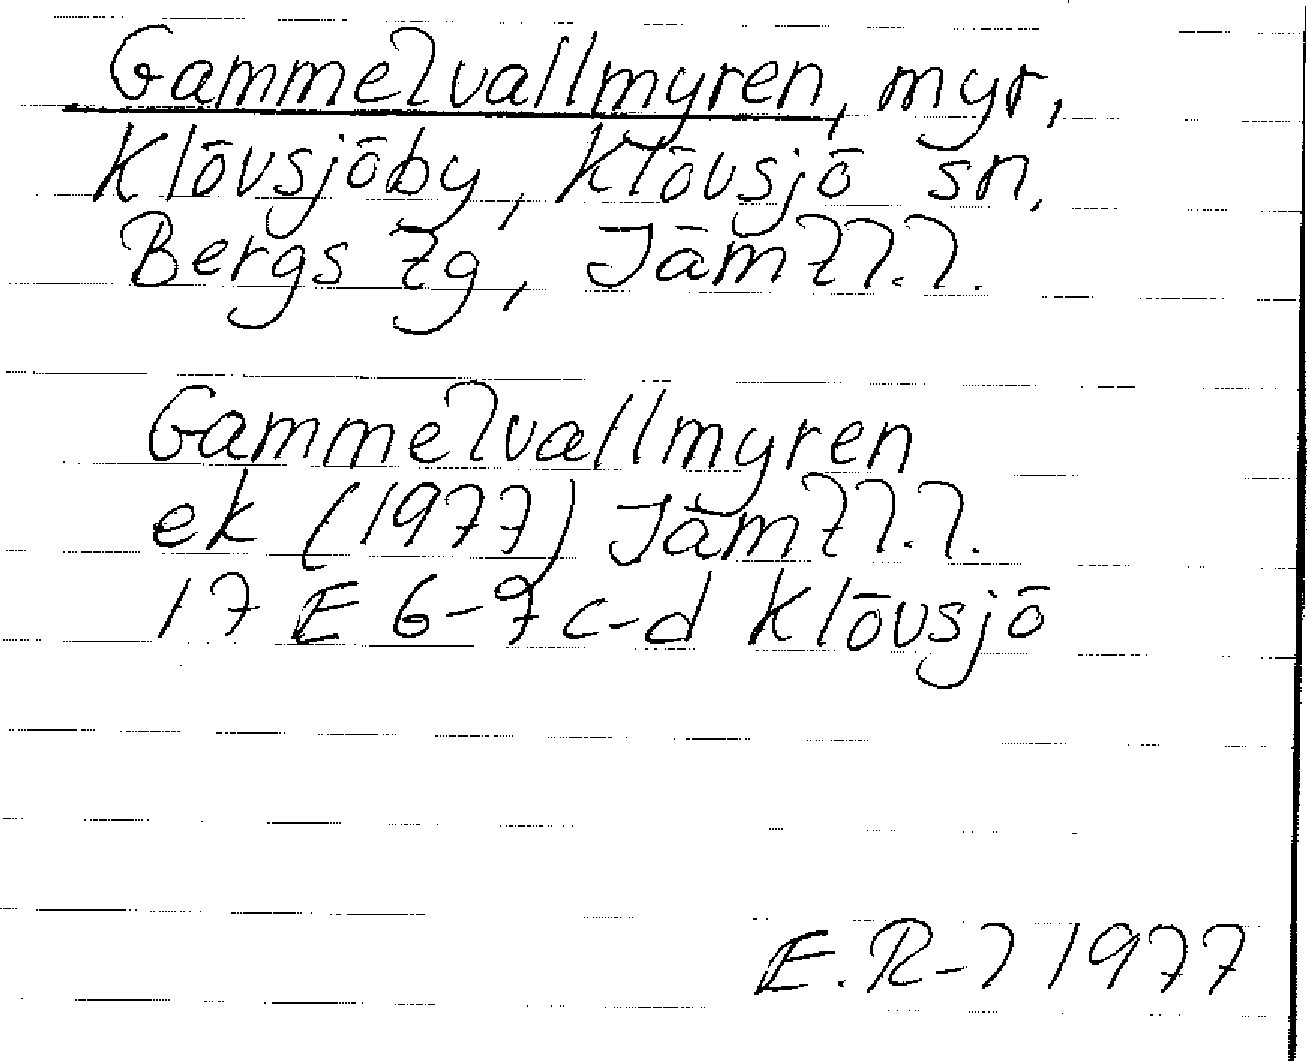 Gammelvallmyren, myr,
Klövsjöby, Klövsjö sn,
Bergs tg, Jämtl.l.
Gammelvallmyren
ek (1977) Jämtl.l.
17 E 6-7 c-d Klövsjö
E.R-l 1977